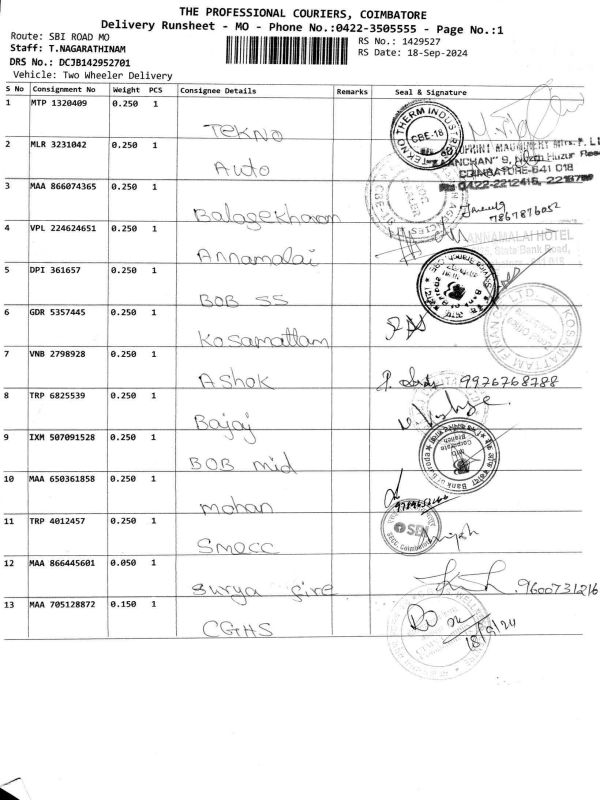 THE PROFESSIONAL COURIERS, COIMBATORE
Delivery Runsheet - MO - Phone No.:0422-3505555 - Page No.:1
Route: SBI ROAD MO
RS No.: 1429527
Staff: T.NAGARATHINAM
RS Date: 18-Sep-2024
DRS No.: DCJB142952701
Vehicle: Two Wheeler Delivery
S No Consignment No Weight PCS Consignee Details Remarks Seal & Signature
1 MTP 1320409 0.250 1
Tekno
TEKNO THERM INDUSTR
CBE-18
2 MLR 3231042 0.250 1
Auto
COIMBATORE-641 018
0422-2212416
3 MAA 866074365 0.250 1
Balagekharan
7867876052
4 VPL 224624651 0.250 1
Annamalai
ANNAMALAI HOTEL
State Bank Road,
5 DPI 361657 0.250 1
BOB SS
6 GDR 5357445 0.250 1
Kosamattam
KOSAMATTAM FINANCE LTD.
7 VNB 2798928 0.250 1
Ashok
9976768788
8 TRP 6825539 0.250 1
Bajaj
9 IXM 507091528 0.250 1
BOB mid
Bank of Baroda
Corporate
Branch
10 MAA 650361858 0.250 1
mohan
11 TRP 4012457 0.250 1
Smecc
SBI
12 MAA 866445601 0.050 1
Surya fire
9600731216
13 MAA 705128872 0.150 1
CGHS
18/9/24